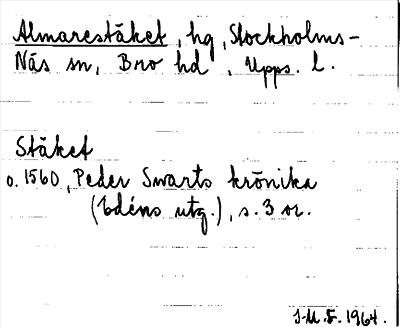 Almarestäket, hg, Stockholms-
Näs sn, Bro hd, Upps. l.
Stäket
o. 1560, Peder Swarts krönika
(Edéns utg.), s. 3 or.
J-M. F. 1964.